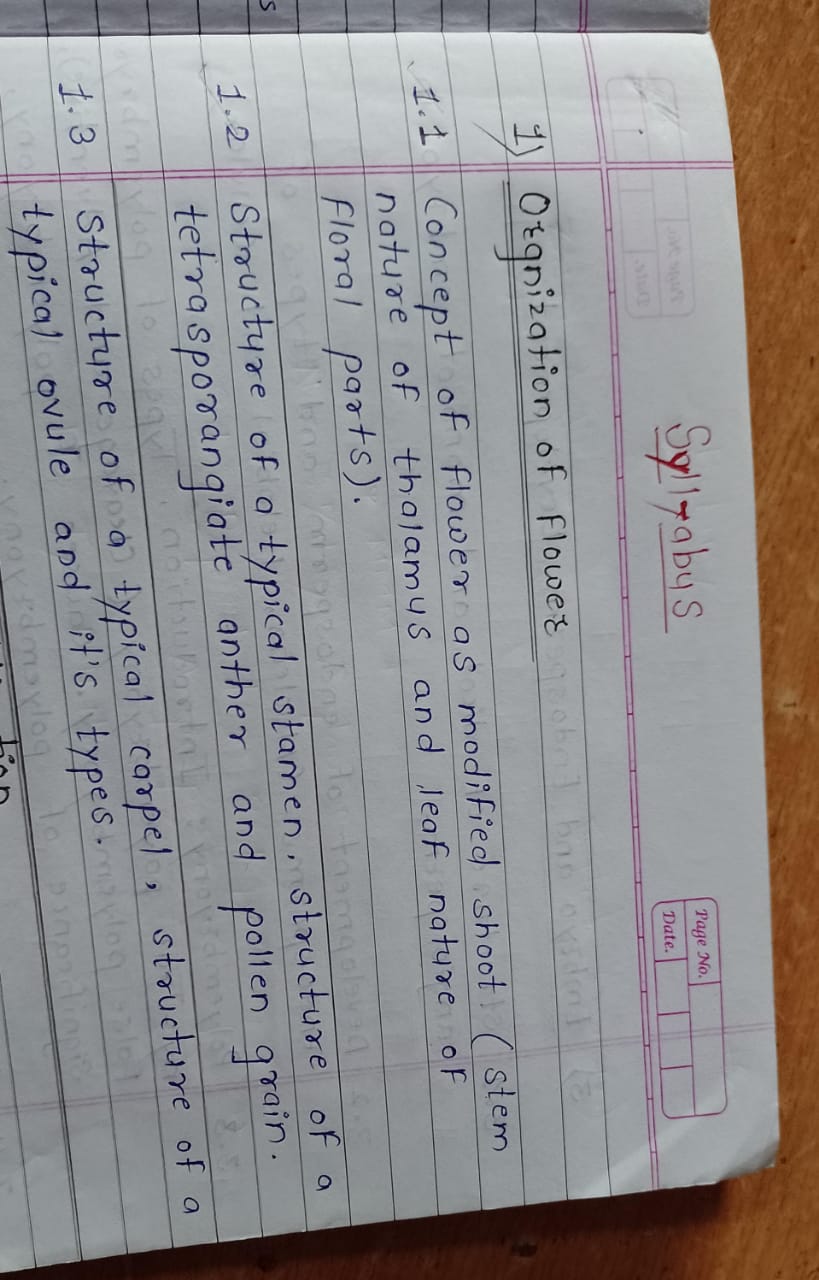 Page No.
Date.
Syllabus
1) Orgnization of flower
1.1 Concept of flower as modified shoot (stem
nature of thalamus and leaf nature of
floral parts).
1.2 Structure of a typical stamen, structure of a
tetrasporangiate anther and pollen grain.
1.3 Structure of a typical carpel, structure of a
typical ovule and it's types.